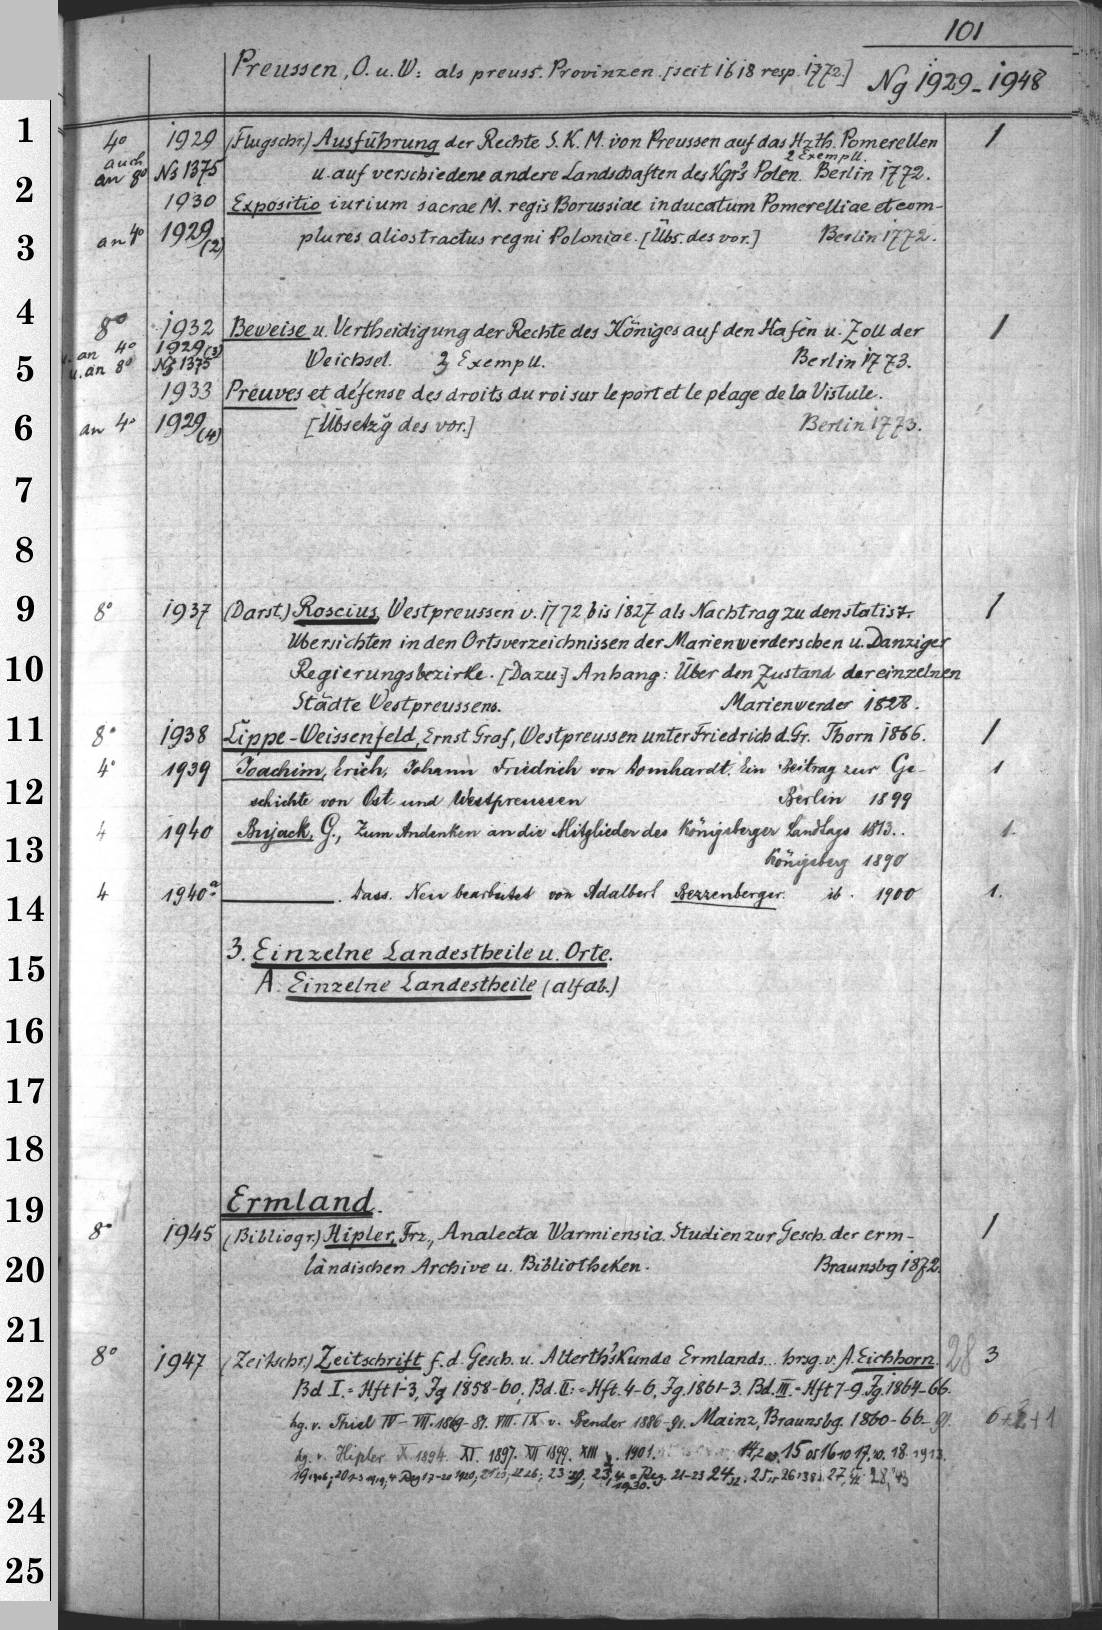 101
Preussen, O. u. W: als preuss. Provinzen. [seit 1618 resp. 1772.] Ng 1929-1948
1 4° 1929 (Flugschr.) Ausführung der Rechte S. K. M. von Preussen auf das Hzth. Pomerellen 1
auch 2 Exempll.
2 an 8° Ns 1375 u. auf verschiedene andere Landschaften des Kgr's Polen. Berlin 1772.
1930 Expositio iurium sacrae M. regis Borussiae in ducatum Pomerelliae et com-
3 an 4° 1929 (2) plures alios tractus regni Poloniae. [Übs. des vor.] Berlin 1772.
4 8° 1932 Beweise u. Vertheidigung der Rechte des Königes auf den Hafen u. Zoll der 1
an 4° 1929 (3)
5 u. an 8° 1375 Weichsel. Exempll. Berlin 1773.
1933 Preuves et défense des droits du roi sur le port et le péage de la Vistule.
6 an 4° 1929 (4) [Übsetzg des vor.] Berlin 1773.
7
8
9 8° 1937 (Darst.) Roscius, Westpreussen v. 1772 bis 1827 als Nachtrag zu den statist. 1
Übersichten in den Ortsverzeichnissen der Marienwerderschen u. Danziger
10 Regierungsbezirke. [Dazu:] Anhang: Über den Zustand der einzelnen
Städte Westpreussens. Marienwerder 1828.
11 8° 1938 Lippe-Weissenfeld, Ernst Graf, Westpreussen unter Friedrich d. Gr. Thorn 1866. 1
4° 1939 Joachim, Erich, Johann Friedrich von Domhardt. Ein Beitrag zur Ge- 1
12 schichte von Ost und Westpreussen Berlin 1899
4 1940 Bujack, G., Zum Andenken an die Mitglieder des Königsberger Landtags 1813.. 1.
13 Königsberg 1890
14 4 1940a ______. Dass. Neu bearbeitet von Adalbert Bezzenberger. ib. 1900 1.
3. Einzelne Landestheile u. Orte.
15 A. Einzelne Landestheile (alfab.)
16
17
18
19 Ermland.
8° 1945 (Bibliogr.) Hipler, Frz., Analecta Warmiensia. Studien zur Gesch. der erm- 1
20 ländischen Archive u. Bibliotheken. Braunsbg 1872.
21
8° 1947 (Zeitschr.) Zeitschrift f. d. Gesch. u. Alterth'skunde Ermlands... hrsg. v. A. Eichhorn. 28 3
22 Bd I. = Hft 1-3, Jg 1858-60, Bd. II: = Hft. 4-6, Jg. 1861-3. Bd. III. = Hft 7-9. Jg. 1864-66.
hg. v. Thiel IV- VII. 1869- 81. VIII. IX v. Bender 1886-91. Mainz, Braunsbg. 1860-66-91. 6+2+1
23 hg. v. Hipler X 1894. XI. 1897. XII 1899. XIII 1901. 15 16 17 18. 1913.
24
25